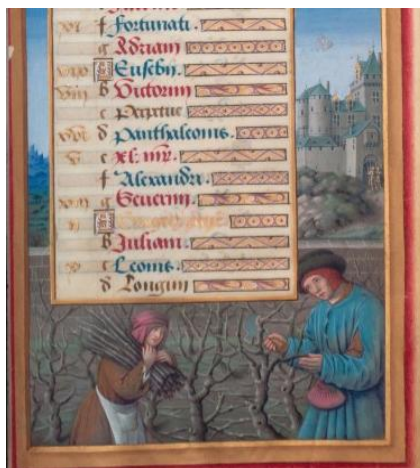 f fortunati.
g Adriani
A Eusebii.
b Victorini
c Perpetue
d Panthaleonis.
e xl. mr.
f Alexandri.
g Severini.
A
b Juliani.
c Leonis.
d Longini